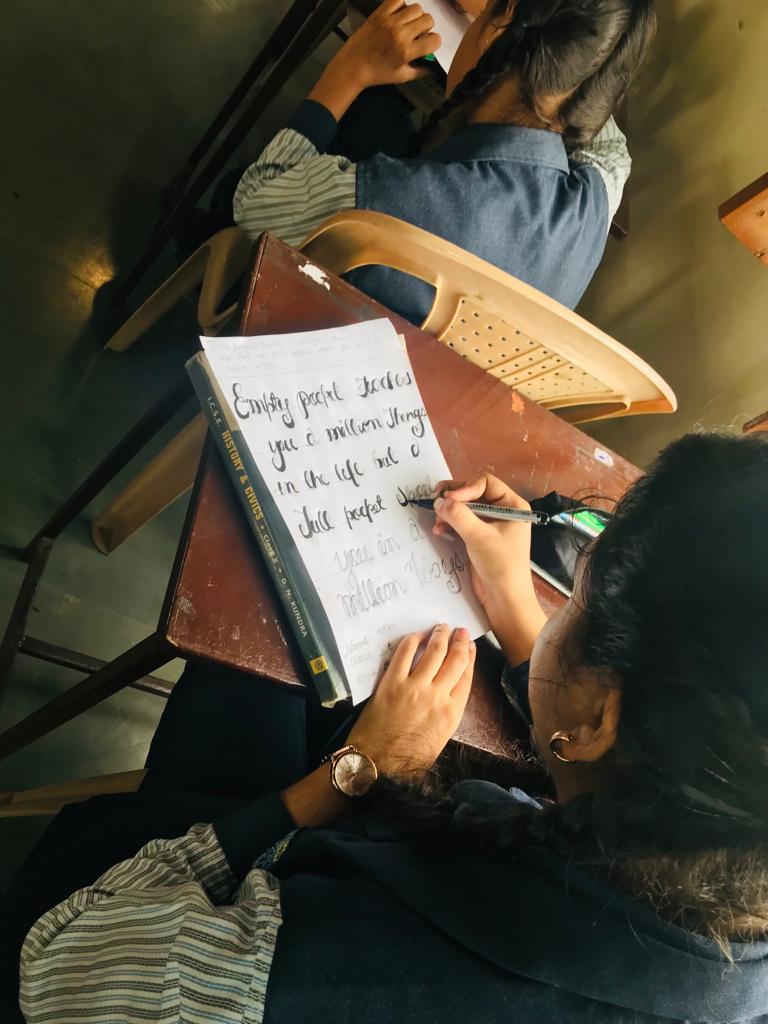 Empty pocket teaches
you a million Things
in the life but a
Full pocket
you in a
million Ways
Name
Class
I.C.S.E. HISTORY & CIVICS • Class X • D. N. KUNDRA